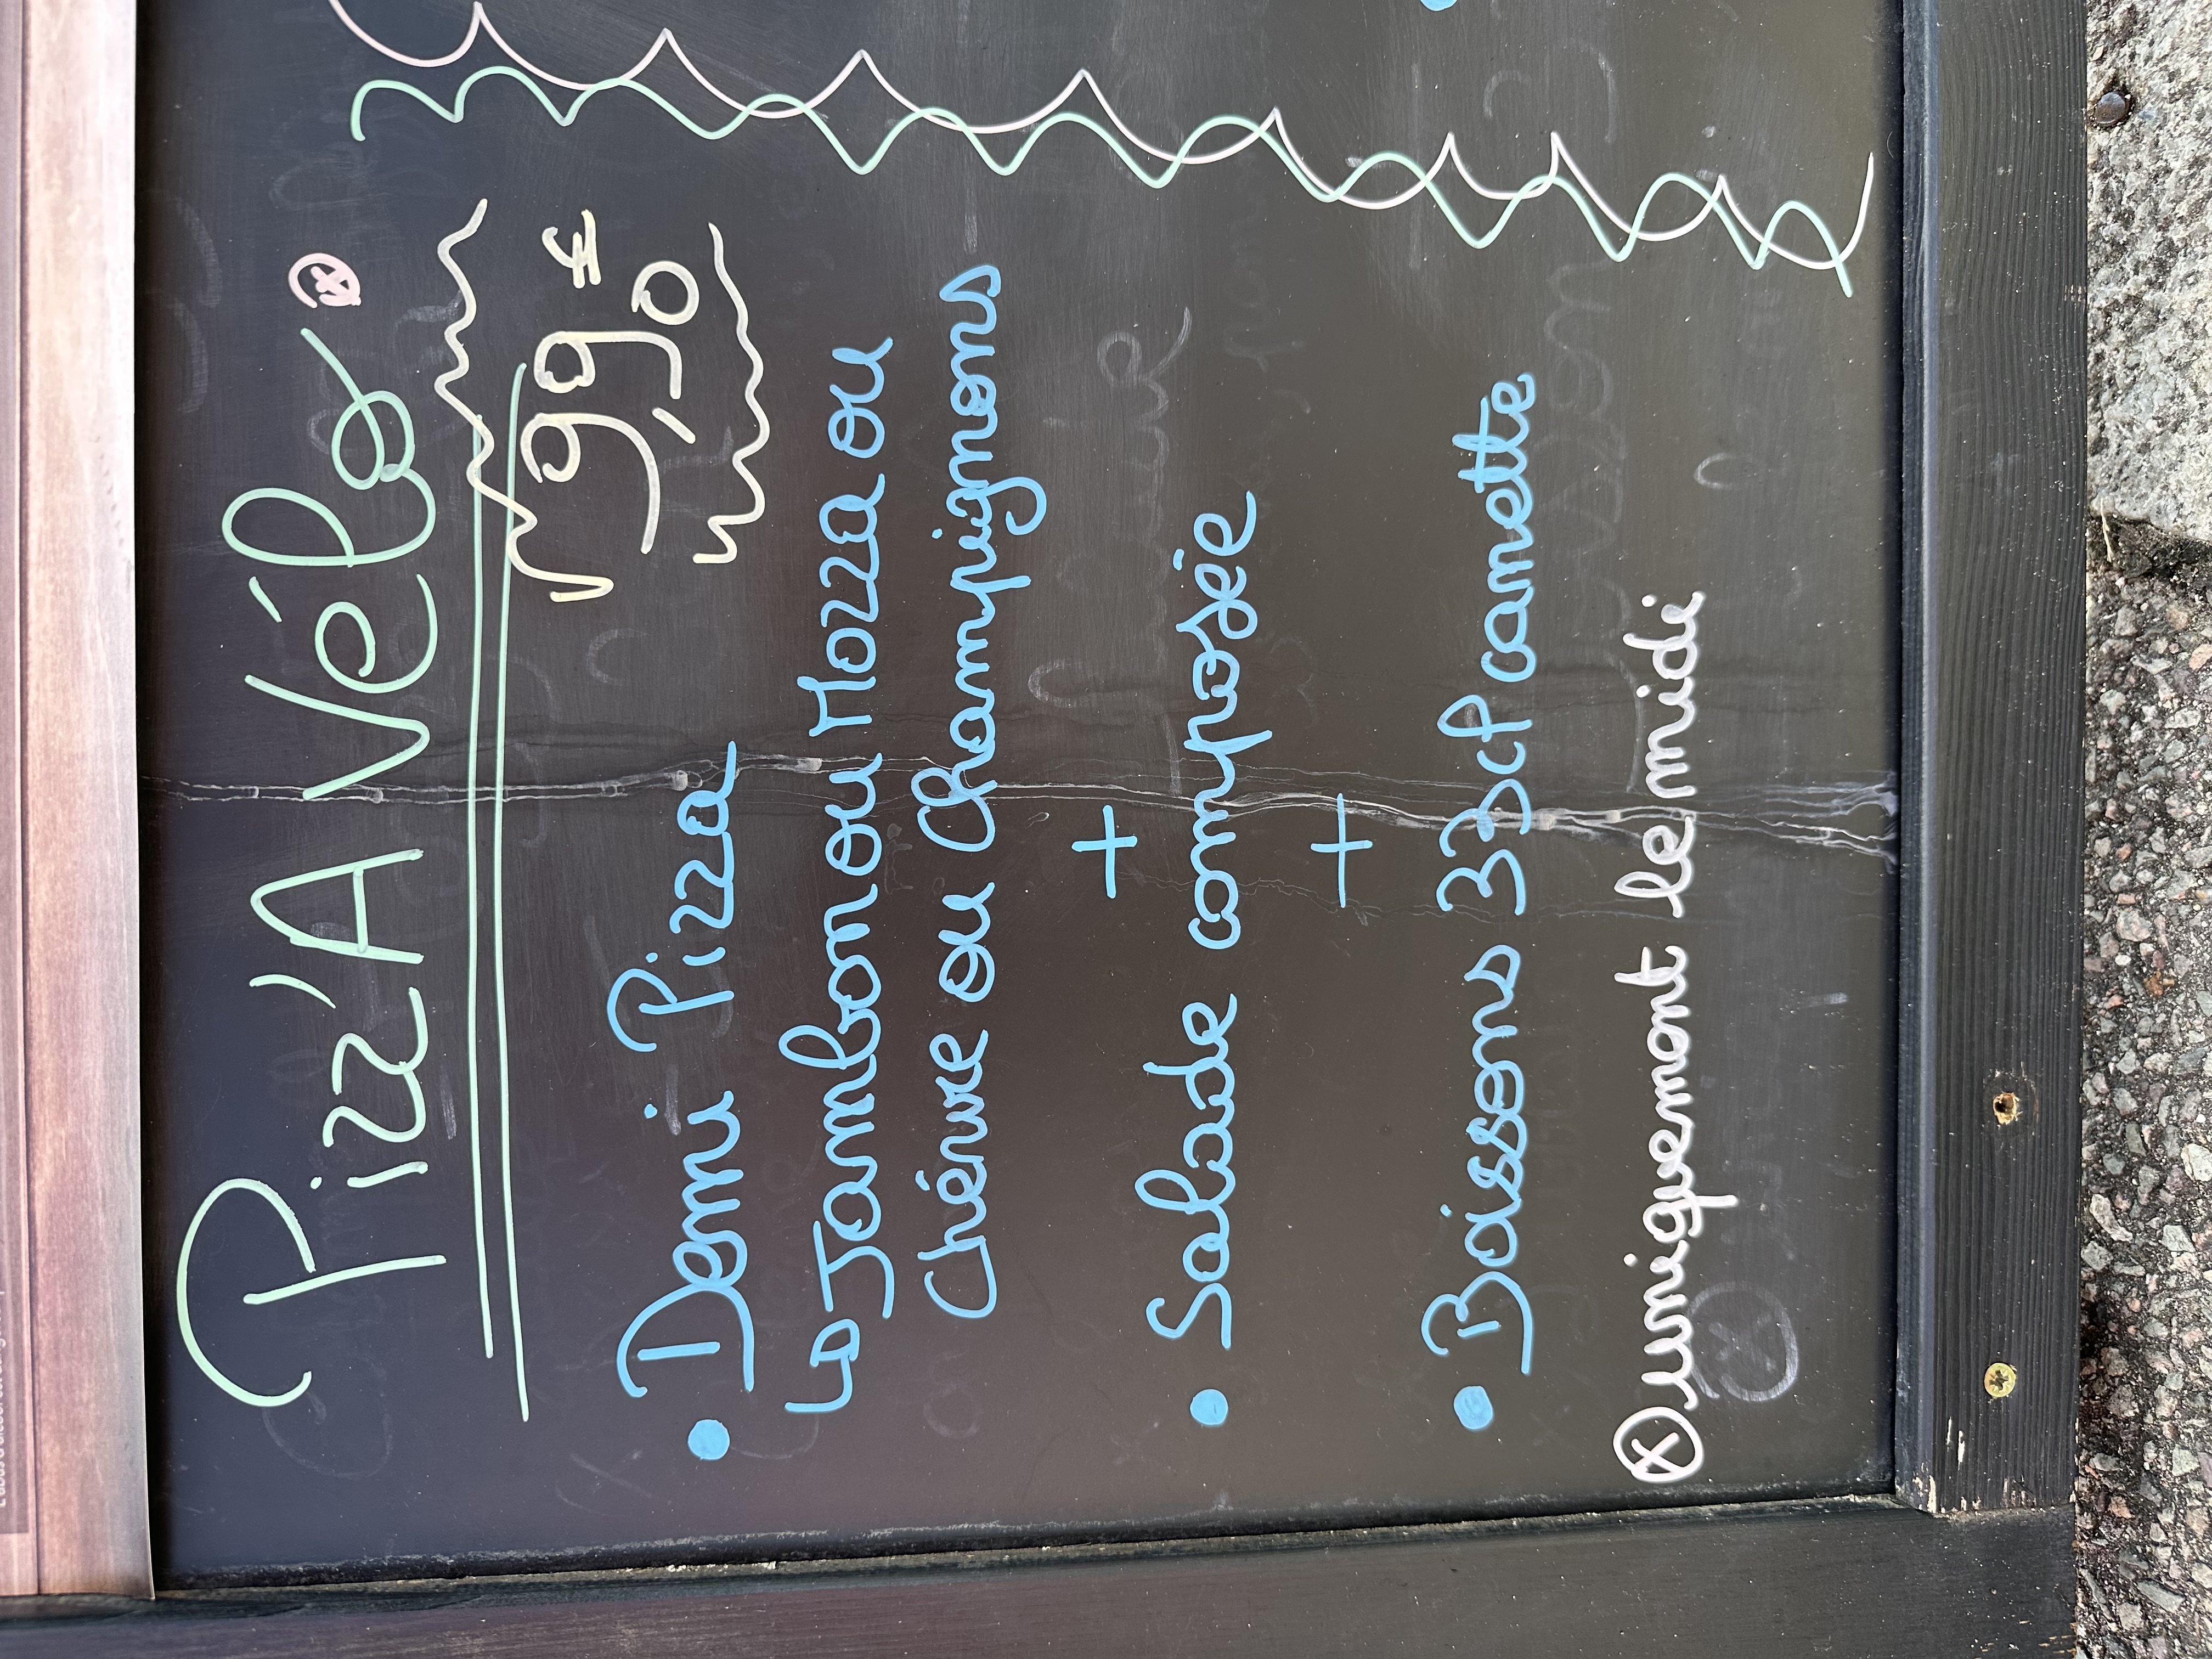 Pizz'A Vélo ⊗
9,90 €
• Demi Pizza
↳ Jambon ou Mozza ou
Chévre ou Champignons
+
• Salade composée
+
• Boissons 33cl canette
⊗ uniquement le midi